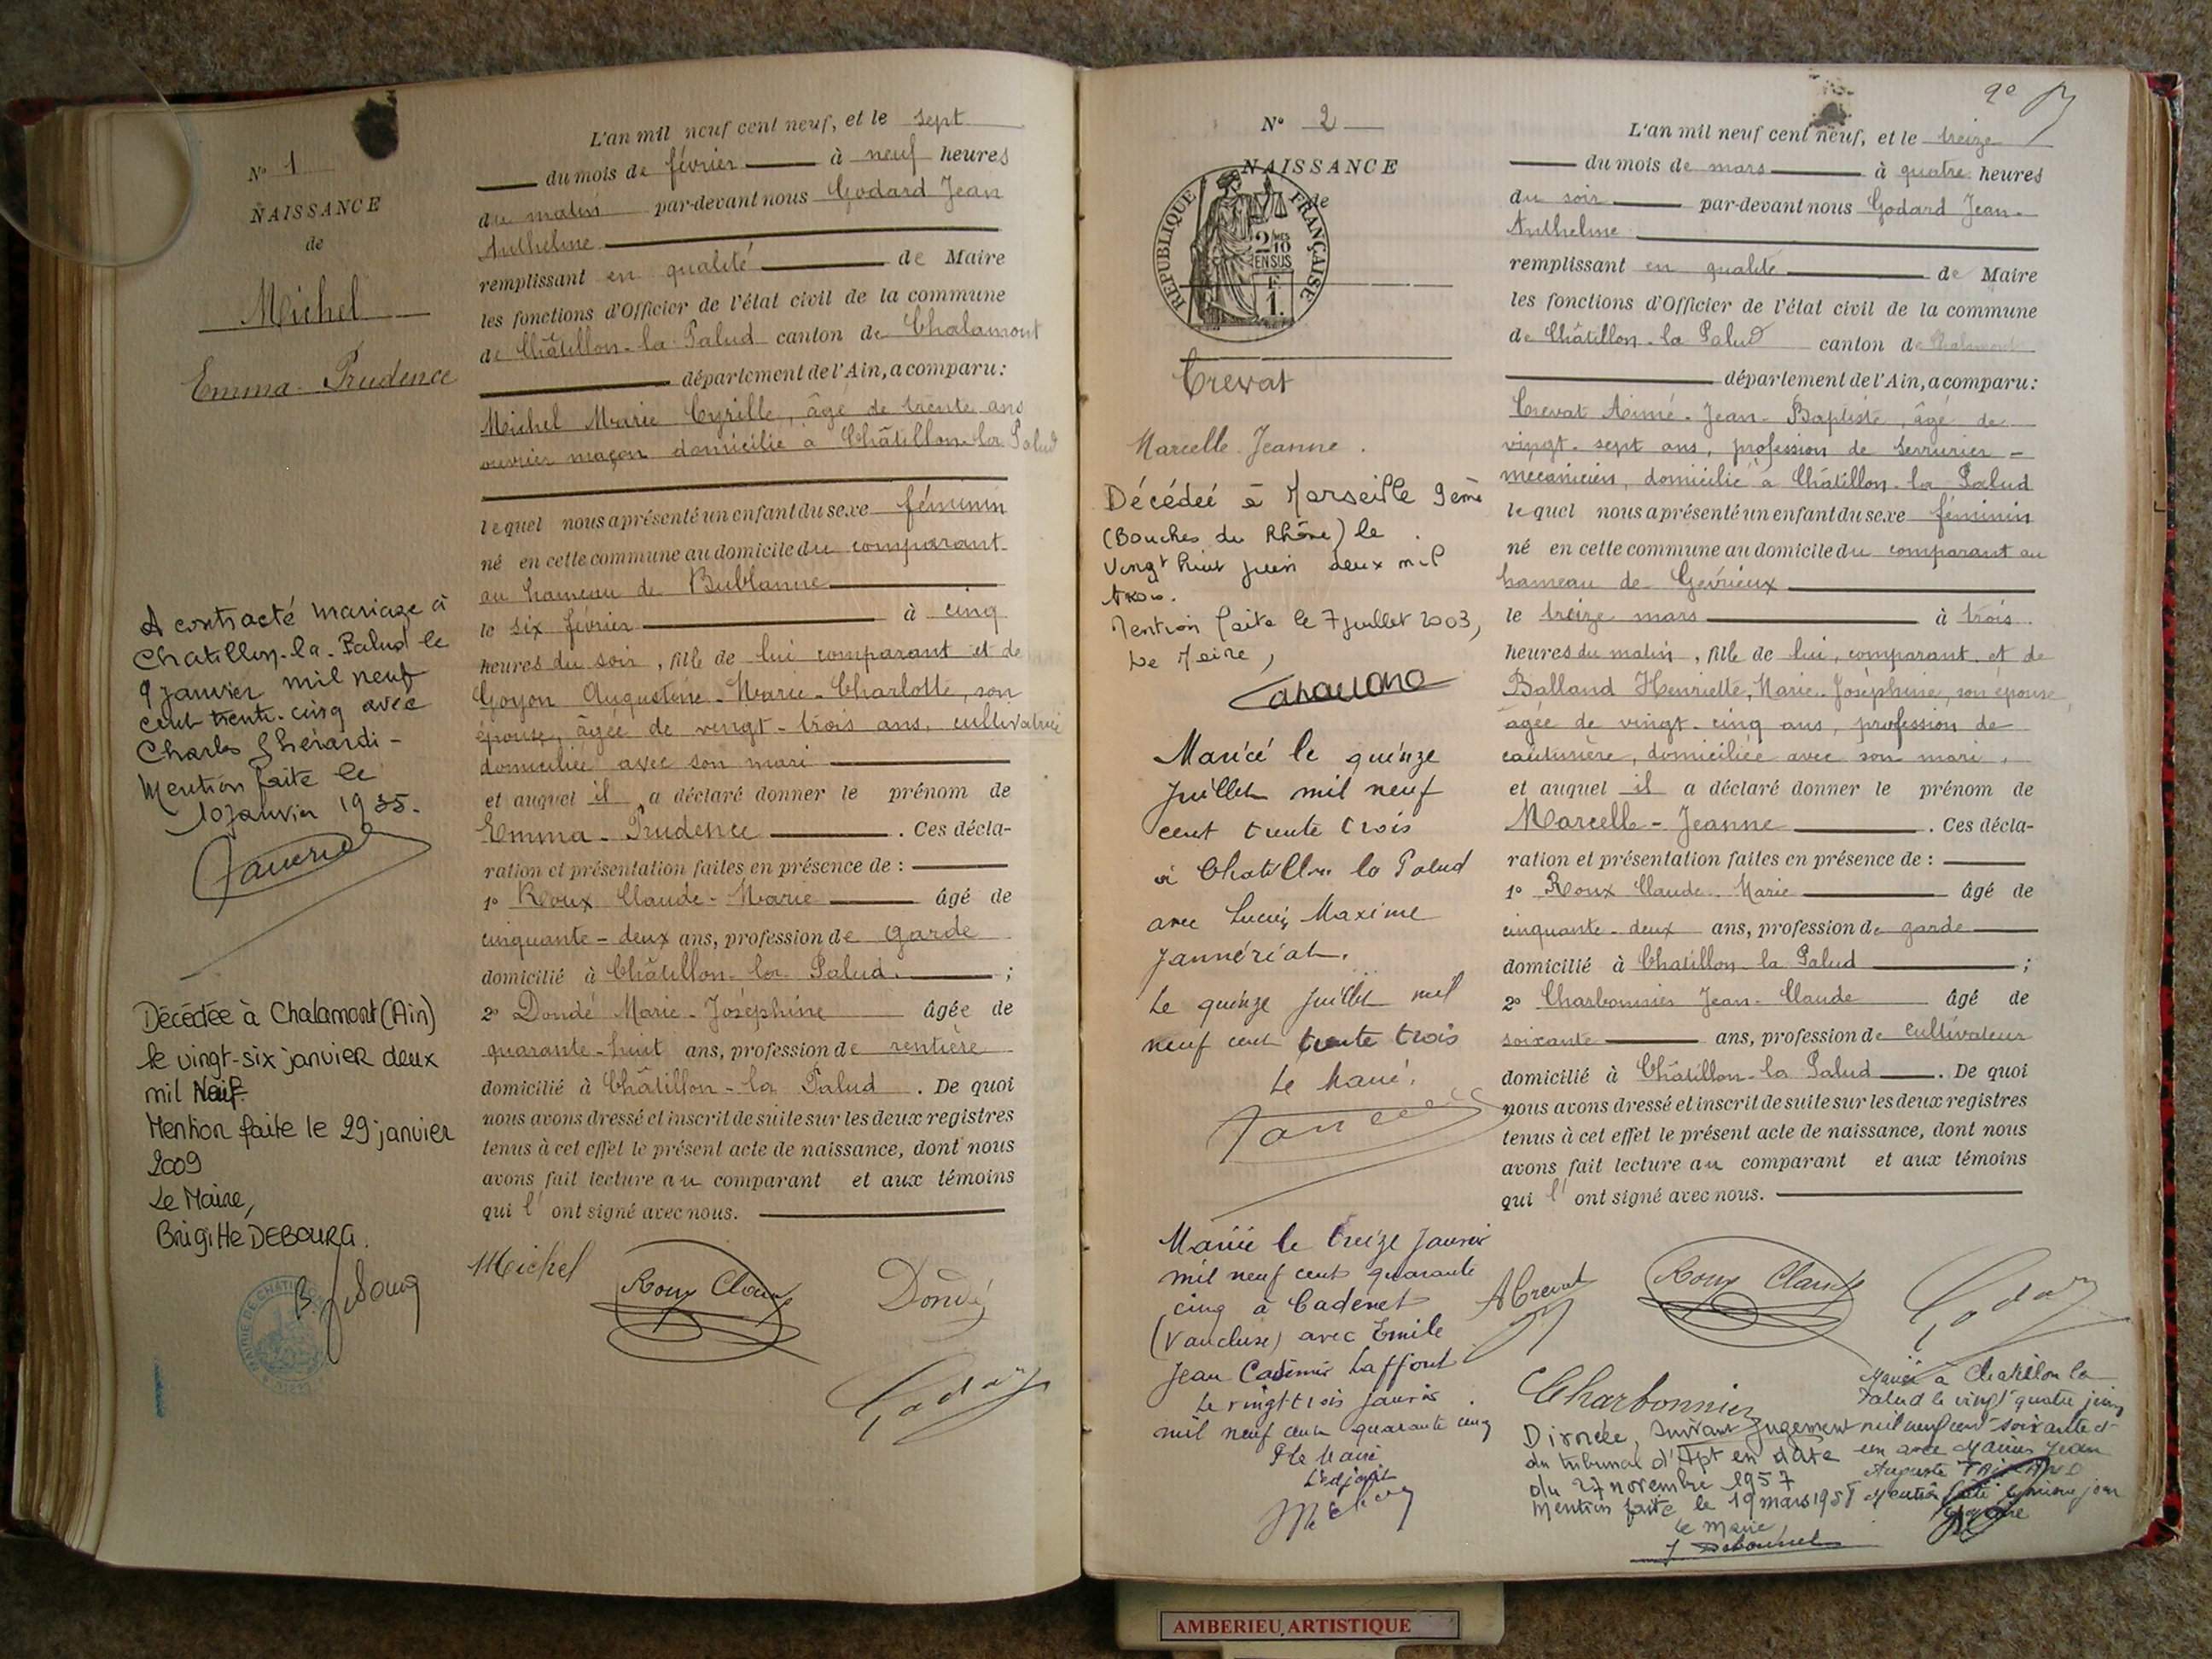 N° 1
NAISSANCE
de
Michel
Emma-Prudence
A contracté mariage à
Chatillon-la-Palud le
9 janvier mil neuf
cent trente-cinq avec
Charles Ghérardi-
Mention faite le
10 janvier 1935.
Décédée à Chalamont (Ain)
le vingt-six janvier deux
mil Neuf.
Mention faite le 29 janvier
2009
Le Maire,
Brigitte DEBOURG.
L'an mil neuf cent neuf, et le sept
du mois de février à neuf heures
du matin par-devant nous Godard Jean
Anthelme
remplissant en qualité de Maire
les fonctions d'Officier de l'état civil de la commune
de Châtillon-la-Palud canton de Chalamont
département de l'Ain, a comparu:
Michel Marie Cyrille, âgé de trente ans
ouvrier maçon domicilié à Châtillon-la-Palud
lequel nous a présenté un enfant du sexe féminin
né en cette commune au domicile du comparant
au hameau de Bublanne
le six février à cinq
heures du soir, fille de lui comparant et de
Goyon Augustine-Marie-Charlotte, son
épouse, âgée de vingt-trois ans, cultivatrice
domiciliée avec son mari
et auquel il a déclaré donner le prénom de
Emma-Prudence. Ces décla-
ration et présentation faites en présence de:
1° Roux Claude-Marie âgé de
cinquante-deux ans, profession de garde
domicilié à Châtillon-la-Palud. ;
2° Dondé Marie-Joséphine âgée de
quarante-huit ans, profession de rentière
domicilié à Châtillon-la Palud. De quoi
nous avons dressé et inscrit de suite sur les deux registres
tenus à cet effet le présent acte de naissance, dont nous
avons fait lecture au comparant et aux témoins
qui l'ont signé avec nous.
Michel Roux Claude Dondé
Godard
N° 2
NAISSANCE
de
REPUBLIQUE FRANÇAISE
2/10
EN SUS
F
1.
Crevat
Marcelle Jeanne.
Décédée à Marseille 9ème
(Bouches du Rhône) le
vingt huit juin deux mil
trois.
Mention faite le 7 juillet 2003,
Le Maire,
Mariée le quinze
juillet mil neuf
cent trente trois
à Chatillon la Palud
avec Lucien Maxime
Jannériat.
Le quinze juillet mil
neuf cent trente trois
Le Maire.
Mariée le treize janvier
mil neuf cent quarante
cinq à Cadenet
(Vaucluse) avec Emile
Jean Casimir Laffont
Le vingt trois janvier
mil neuf cent quarante cinq
P le Maire
L'adjoint
2e
L'an mil neuf cent neuf, et le treize
du mois de mars à quatre heures
du soir par-devant nous Godard Jean-
Anthelme
remplissant en qualité de Maire
les fonctions d'Officier de l'état civil de la commune
de Châtillon-la Palud canton de Chalamont
département de l'Ain, a comparu:
Crevat Aimé-Jean-Baptiste, âgé de
vingt-sept ans, profession de serrurier-
mécanicien, domicilié à Châtillon-la Palud
lequel nous a présenté un enfant du sexe féminin
né en cette commune au domicile du comparant au
hameau de Gevrieux
le treize mars à trois
heures du matin, fille de lui, comparant, et de
Balland Henriette, Marie-Joséphine, son épouse,
âgée de vingt-cinq ans, profession de
couturière, domiciliée avec son mari,
et auquel il a déclaré donner le prénom de
Marcelle-Jeanne. Ces décla-
ration et présentation faites en présence de:
1° Roux Claude-Marie âgé de
cinquante-deux ans, profession de garde
domicilié à Chatillon-la Palud ;
2° Charbonnier Jean-Claude âgé de
soixante ans, profession de cultivateur
domicilié à Châtillon-la Palud. De quoi
nous avons dressé et inscrit de suite sur les deux registres
tenus à cet effet le présent acte de naissance, dont nous
avons fait lecture au comparant et aux témoins
qui l'ont signé avec nous.
A Crevat Roux Claude Godard
Charbonnier
Divorcée, suivant jugement
du tribunal d'Apt en date
du 27 novembre 1957
Mention faite le 19 mars 1958
le Maire
Mariée à Chatillon la
Palud le vingt quatre juin
mil neuf cent soixante et
un avec Marius Jean
Auguste
Mention faite le même jour
AMBERIEU ARTISTIQUE